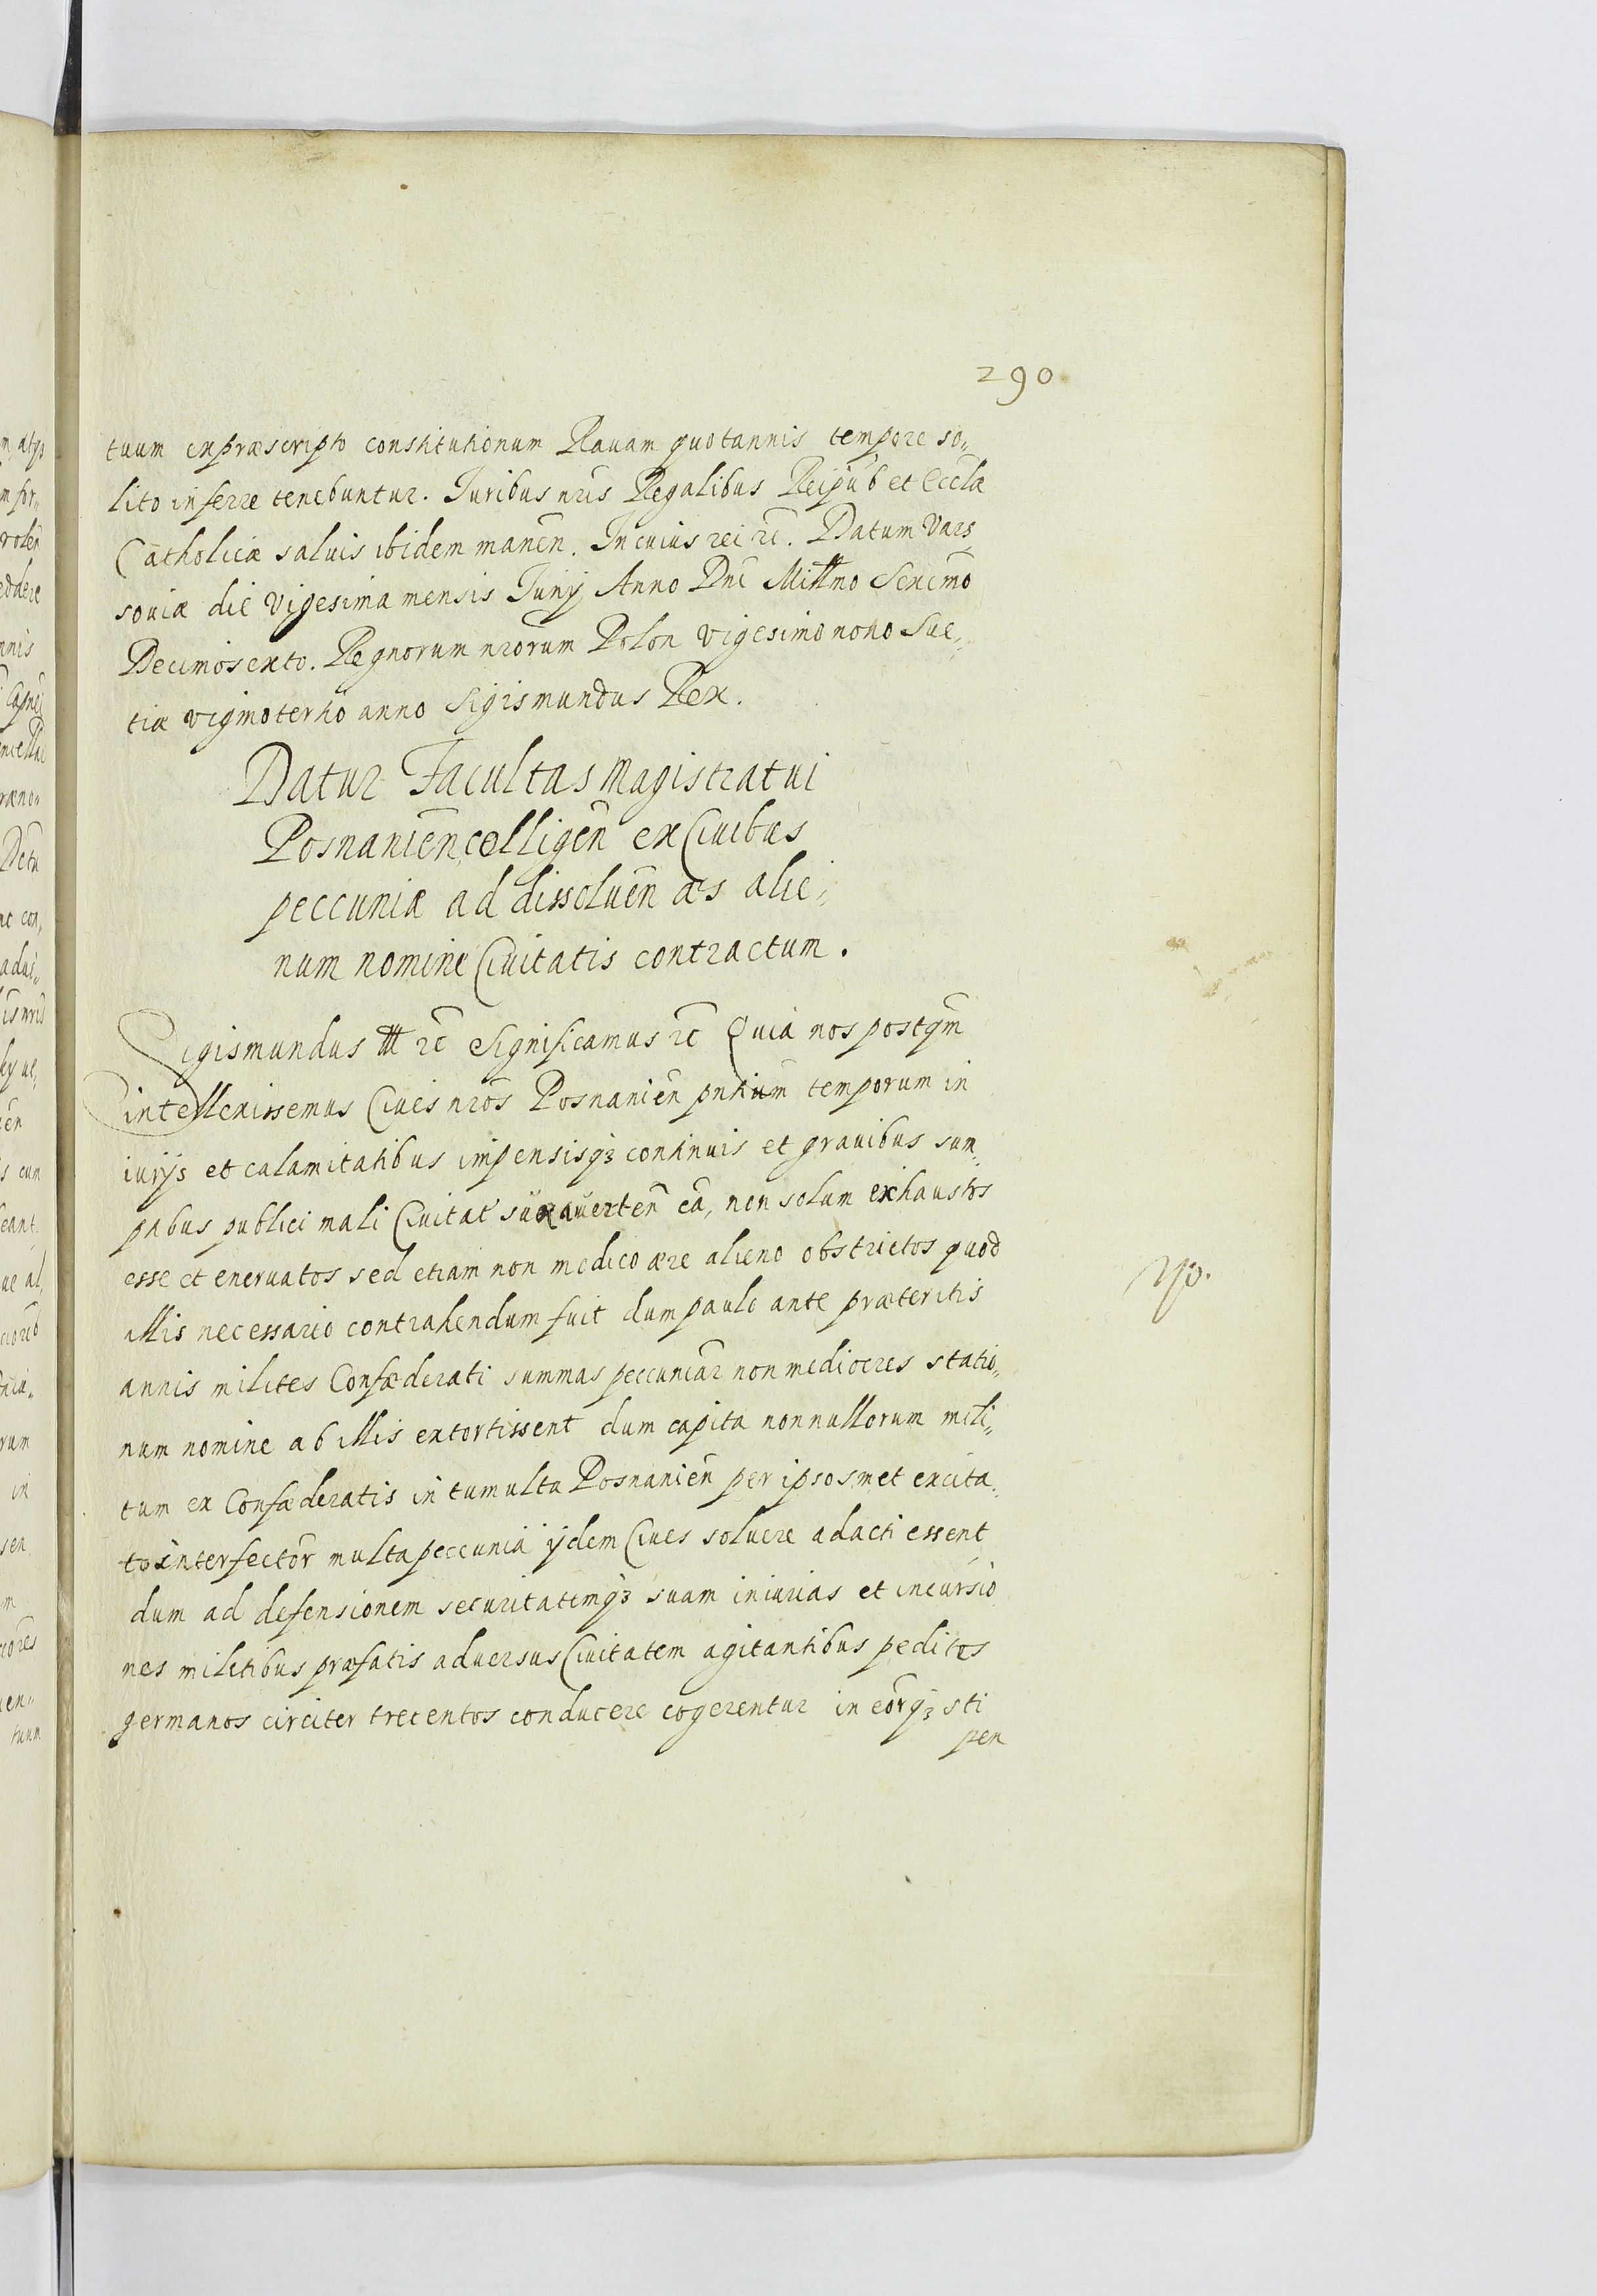 290
tuum ex præscripto constitutionum Rauam quotannis tempore so„
lito inferre tenebuntur. Iuribus nr̃is Regalibus Reipub et Eccla
Catholicæ saluis ibidem maneñ. In cuius rei rc̃. Datum Vars„
souiæ die Vigesima mensis Iunij Anno Dñi Millmo Sexcmo
Decimosexto. Regnorum nrorum Polon vigesimo nono Sue„
tiæ vigmotertio anno Sigismundus Rex.
Datur Facultas Magistratui
Posnanieñ, colligeñ ex Ciuibus
peccuniæ ad dissolueñ æs alie„
num nomine Ciuitatis contractum.
Sigismundus III rc̃ Significamus rc̃ Quia nos postqm̃
intellexissemus Ciues nrõs Posnanieñ pñtium temporum in
iurijs et calamitatibus impensisqꝫ continuis et grauibus sum„
ptibus publici mali Ciuitat̃ auerteñ cã, non solum exhaustos
esse et eneruatos sed etiam non modico ære alieno obstrictos quod
illis necessario contrahendum fuit dum paulo ante præteritis
annis milites Confæderati summas peccuniar̃ non mediocres statio„
num nomine ab illis extortissent dum capita nonnullorum mili„
tum ex Confæderatis in tumultu Posnanieñ per ipsosmet excita„
to interfector̃ multa peccunia ijdem Ciues soluere adacti essent
dum ad defensionem securitatemqꝫ suam iniurias et incursio
nes militibus præfatis aduersus Ciuitatem agitantibus pedites
germanos circiter trecentos conducere cogerentur in eor̃qꝫ sti
pen